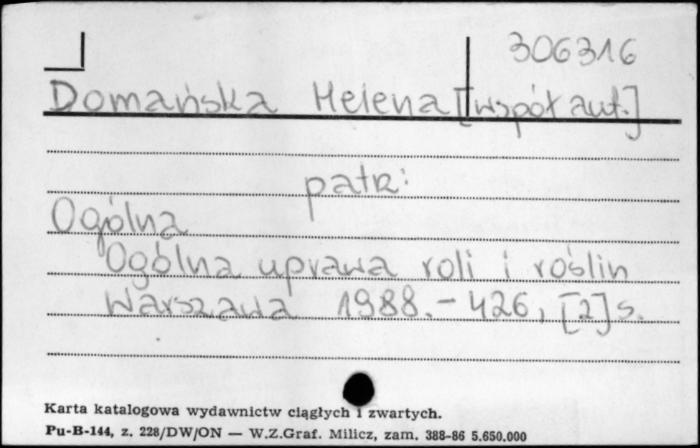 306316
Domańska Helena [współaut.]
patrz:
Ogólna
Ogólna uprawa roli i roślin
Warszawa 1988. - 426, [2] s.
Karta katalogowa wydawnictw ciągłych i zwartych.
Pu-B-144, z. 228/DW/ON — W.Z.Graf. Milicz, zam. 388-86 5.650.000